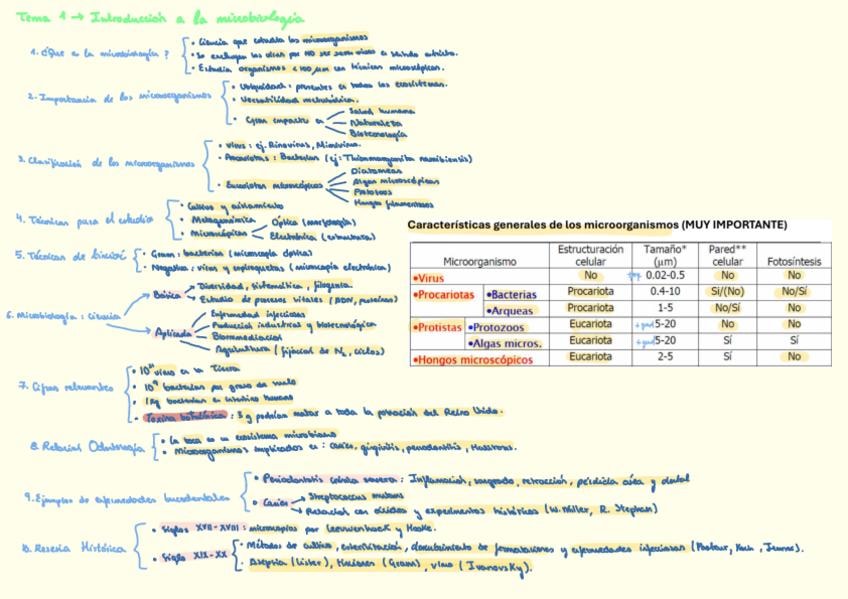 Tema 1 → Introducción a la microbiología
1. ¿Que es la microbiología?
• Ciencia que estudia los microorganismos
• Se excluyen los virus por NO ser seres vivos en sentido estricto.
• Estudia organismos <100 µm con técnicas microscópicas.
2. Importancia de los microorganismos
• Ubiquidad: presentes en todos los ecosistemas.
• Versatilidad metabólica.
• Gran impacto en
Salud humana
Naturaleza
Biotecnología
3. Clasificación de los microorganismos
• Virus: ej. Rinovirus, Mimivirus.
• Procariotas: Bacterias (ej: Thiomargarita namibiensis)
• Eucariotas microscópicos
Diatomeas
Algas microscópicas
Protozoos
Hongos filamentosos
4. Técnicas para el estudio
• Cultivo y aislamiento
• Metagenómica
• Microscópicas
Óptica (morfología)
Electrónica (estructura)
5. Técnicas de tinción
• Gram: bacterias (microscopía óptica)
• Negativa: virus y espiroquetas (microscopía electrónica)
6. Microbiología: ciencia
Básica
Diversidad, sistemática, filogenia.
Estudio de procesos vitales (ADN, proteínas)
Aplicada
Enfermedad infecciosas
Producción industrial y biotecnológica
Biorremediación
Agricultura (fijación de N₂, ciclos)
Características generales de los microorganismos (MUY IMPORTANTE)
Microorganismo Estructuración celular Tamaño* (µm) Pared** celular Fotosíntesis
•Virus No 0.02-0.5 No No
•Procariotas •Bacterias Procariota 0.4-10 Si/(No) No/Sí
•Arqueas Procariota 1-5 No/Sí No
•Protistas •Protozoos Eucariota 5-20 No No
•Algas micros. Eucariota 5-20 Sí Sí
•Hongos microscópicos Eucariota 2-5 Sí No
7. Cifras relevantes
virus en la Tierra
• 10⁹ bacterias por gramo de suelo
• 1 Kg bacterias en intestino humano
• Toxina botulínica: 3 g podrían matar a toda la población del Reino Unido.
8. Relación Odontología
• La boca es un ecosistema microbiano
• Microorganismos implicados en: caries, gingivitis, periodontitis, halitosis.
9. Ejemplos de enfermedades bucodentales
• Periodontitis crónica severa: Inflamación, sangrado, retracción, pérdida ósea y dental
• Caries
→ Streptococcus mutans
→ Relación con ácidos y experimentos históricos (W. Miller, R. Stephan)
10. Reseña Histórica
• Siglos XVII-XVIII: microscopios por Leeuwenhoek y Hooke.
• Siglo XIX-XX
• Métodos de cultivo, esterilización, descubrimiento de fermentaciones y enfermedades infecciosas (Pasteur, Koch, Jenner).
• Asepsia (Lister), tinciones (Gram), virus (Ivanovsky).